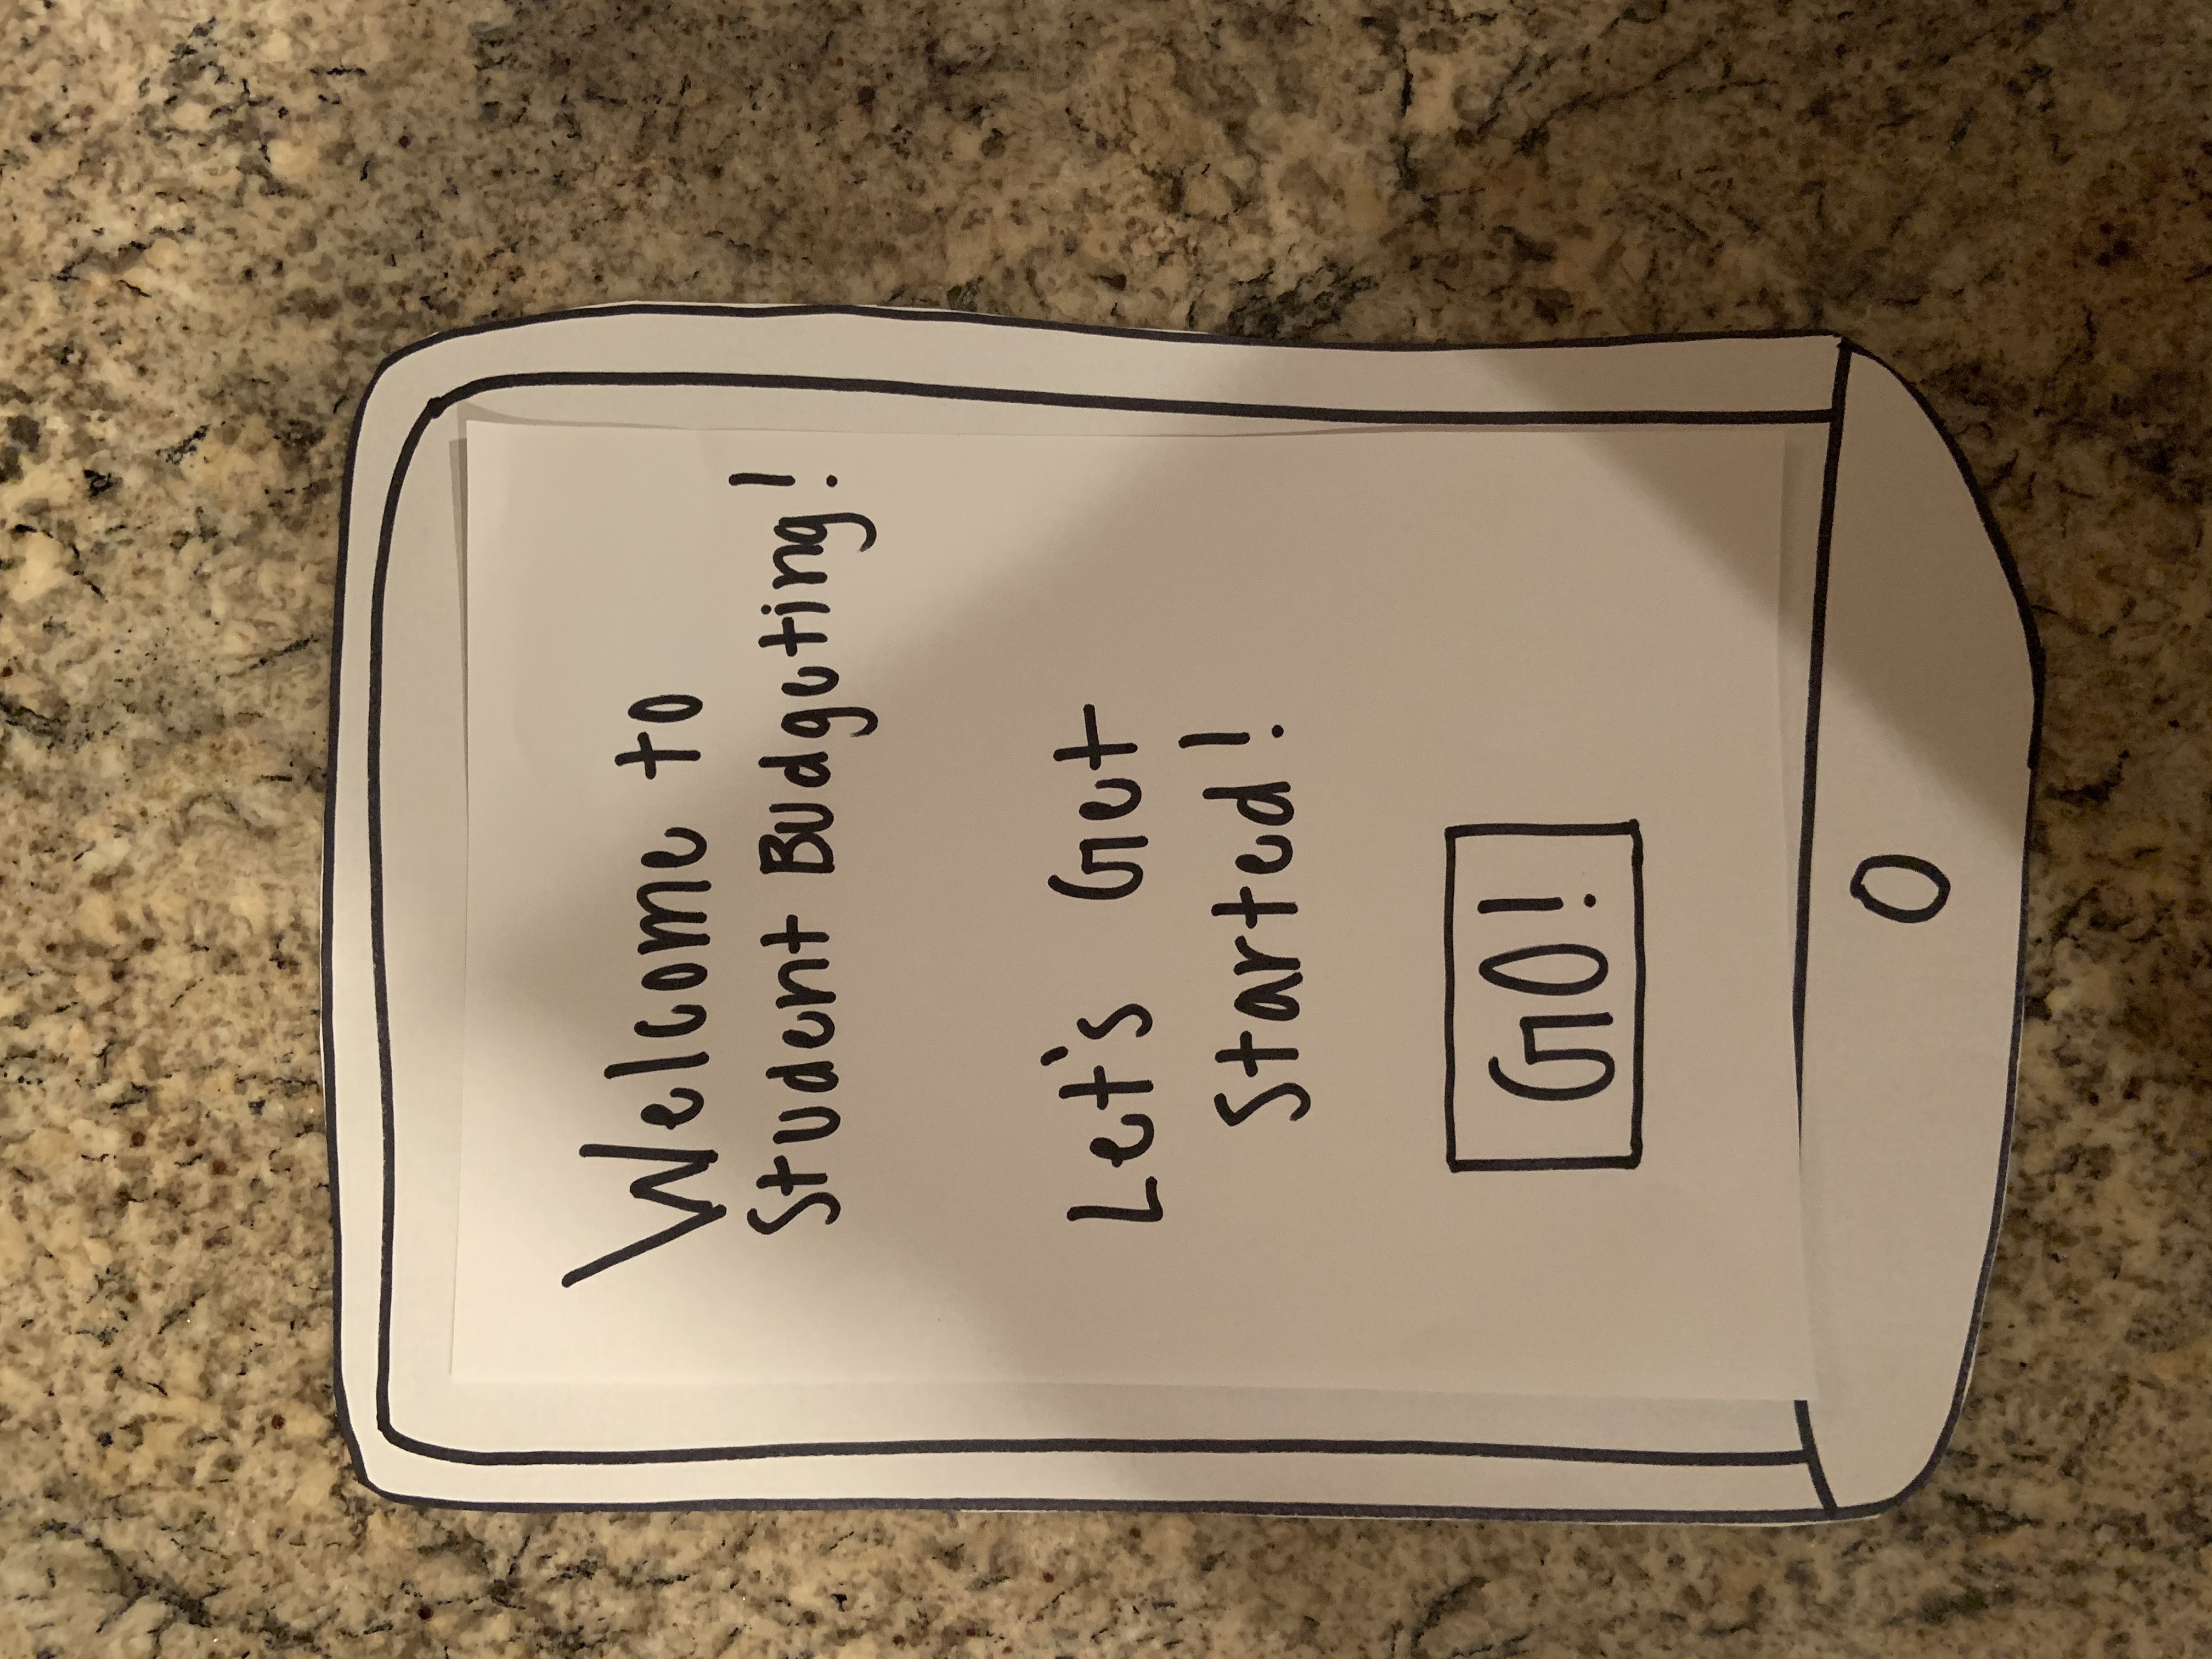 Welcome to
Student Budgeting!
Let's Get
Started!
GO!